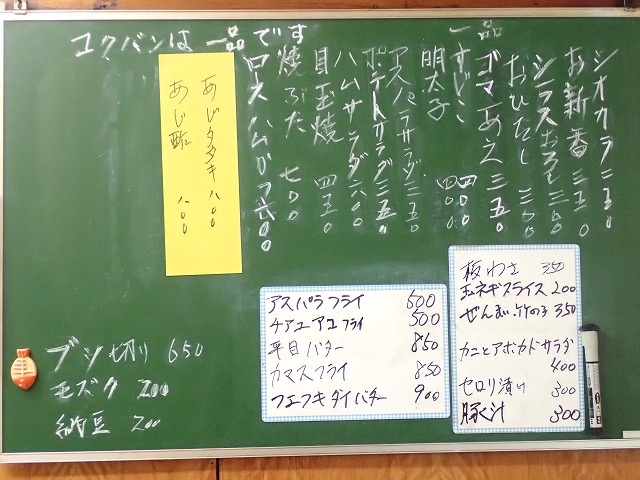 コクバンは一品です
一品
シオカラ 三五〇
お新香 三五〇
シラスおろし 三五〇
おひたし 三〇〇
ゴマあえ 三五〇
すじこ 四〇〇
明太子 四〇〇
アスパラサラダ 三五〇
ポテトサラダ 三五〇
ハムサラダ 六〇〇
目玉焼 四五〇
焼ぶた 七〇〇
ロースハムカツ 六〇〇
あじタタキ 八〇〇
あじ酢 八〇〇
ブツ切り 650
モズク 200
納豆 200
アスパラフライ 600
チアユアユフライ 500
平目バター 850
カマスフライ 850
フエフキダイバター 900
板わさ 350
玉ネギスライス 200
ぜんまい竹の子 350
カニとアボカドサラダ
400
セロリ漬け 300
豚汁 300